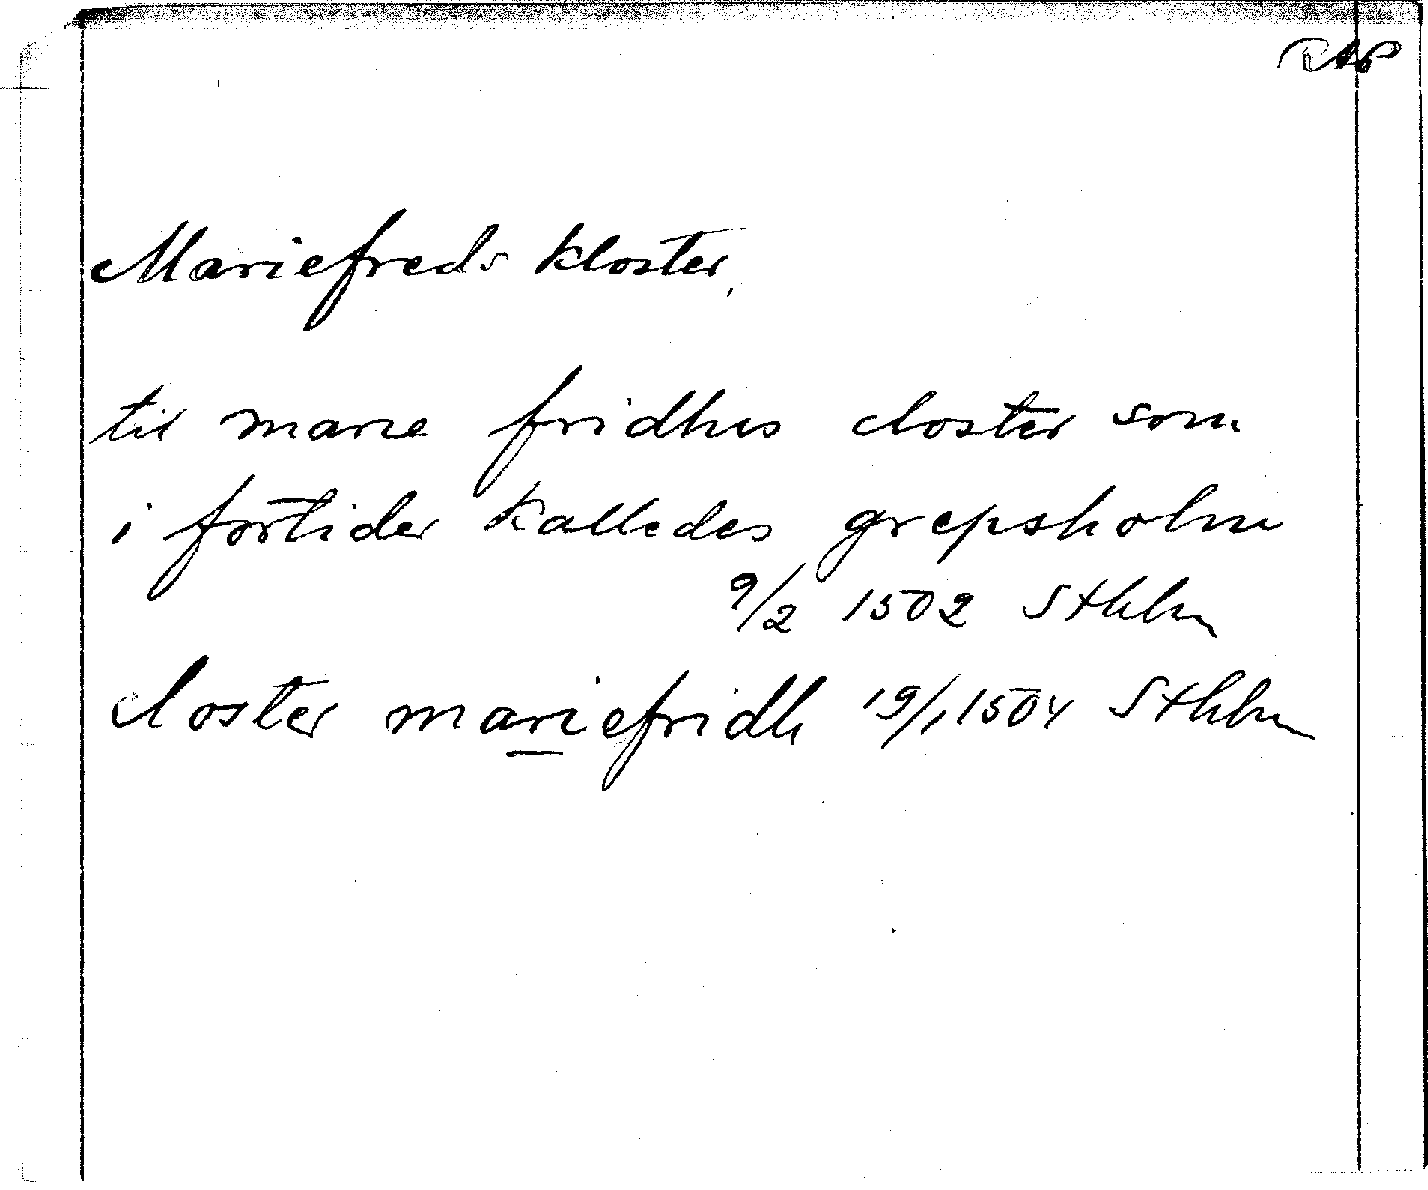 RAP
Mariefreds kloster,
til marie fridhis closter som
i fortider kalledes grepsholm
9/2 1502 Sthlm
closter mariefridh 19/1 1504 Sthlm